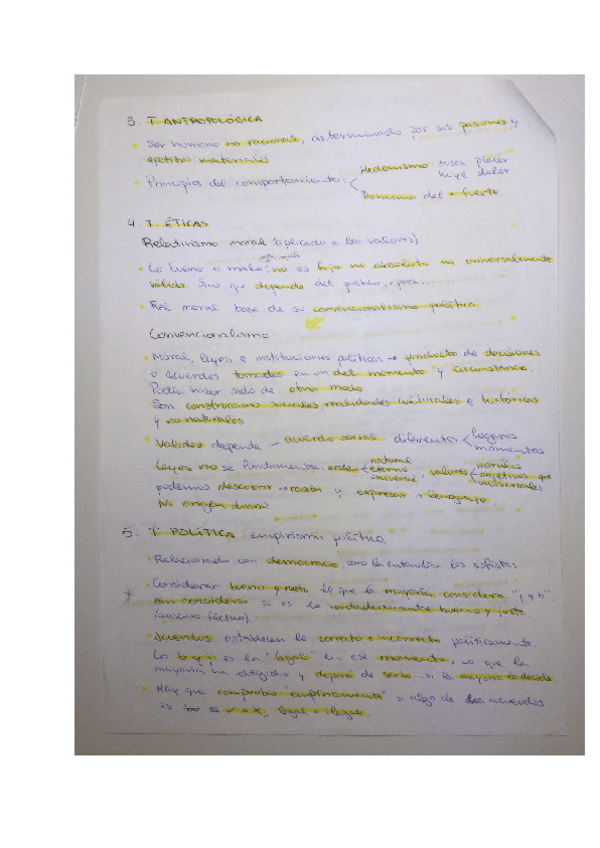 3. T. ANTROPOLÓGICA
• Ser humano no racional, determinado por sus pasiones y
apetitos materiales
• Principios del comportamiento: < Hedonismo: busca placer
huye dolor
Dominio del + fuerte.
4. T. ÉTICAS
Relativismo moral (aplicado a los valores)
• Lo bueno o malo, no es fijo ni absoluto ni universalmente
válido. Sino que depende del pueblo, época...
• Rel. moral base de su convencionalismo político.
Convencionalismo
• Moral, leyes e instituciones políticas → producto de decisiones
o acuerdos tomados en un det. momento y circunstancia.
Podía haber sido de otro modo
Son construcción sociales, realidades culturales e históricas
y no naturales
• Validez depende – acuerdo social diferentes < lugares
momentos
• Leyes no se fundamentan orden < natural
eterno
universal , valores < morales
objetivos que
universales
podemos descubrir → razón y expresar → lenguaje.
Ni origen divino
5. T. POLÍTICA: empirismo político.
• Relacionado con democracia, como la entendían los sofistas
• Considerar bueno y justo lo que la mayoría considera "j y b"
sin considerar si es lo verdaderamente bueno y justo.
(consenso fáctico)
• Acuerdos establecen lo correcto e incorrecto políticamente.
Lo b y j es lo "legal" en ese momento, lo que la
mayoría ha elegido y dejará de serlo si la mayoría lo decide
• Hay que comprobar "empíricamente" si algo de los acuerdos
es ✓ o X, legal o ilegal.